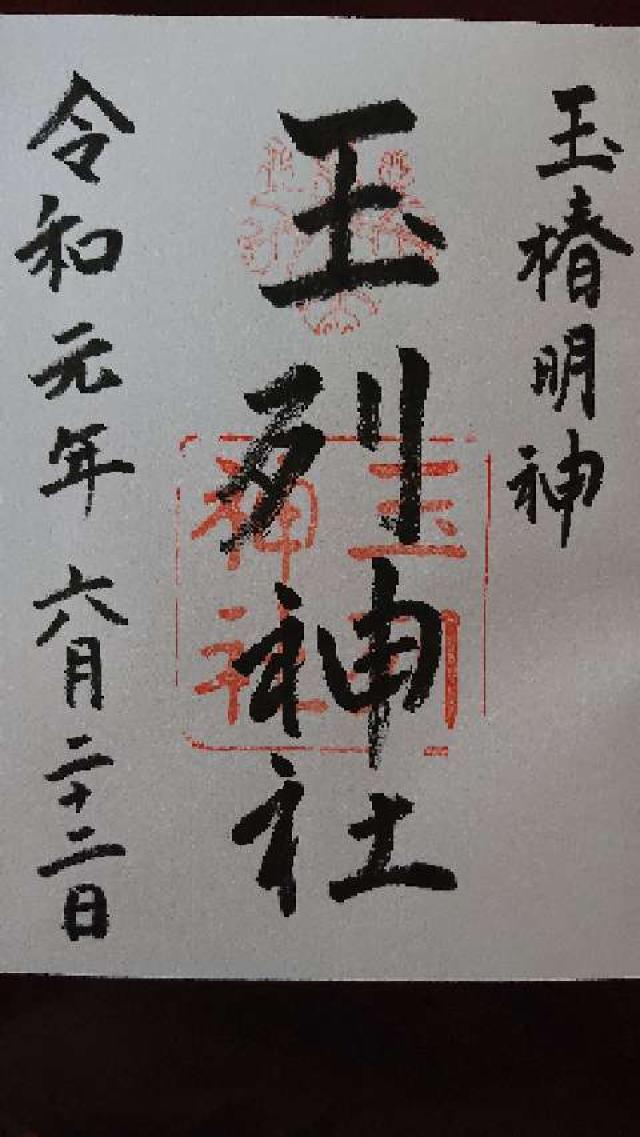 玉椿明神
玉列神社
玉列
神社
令和元年六月二十二日